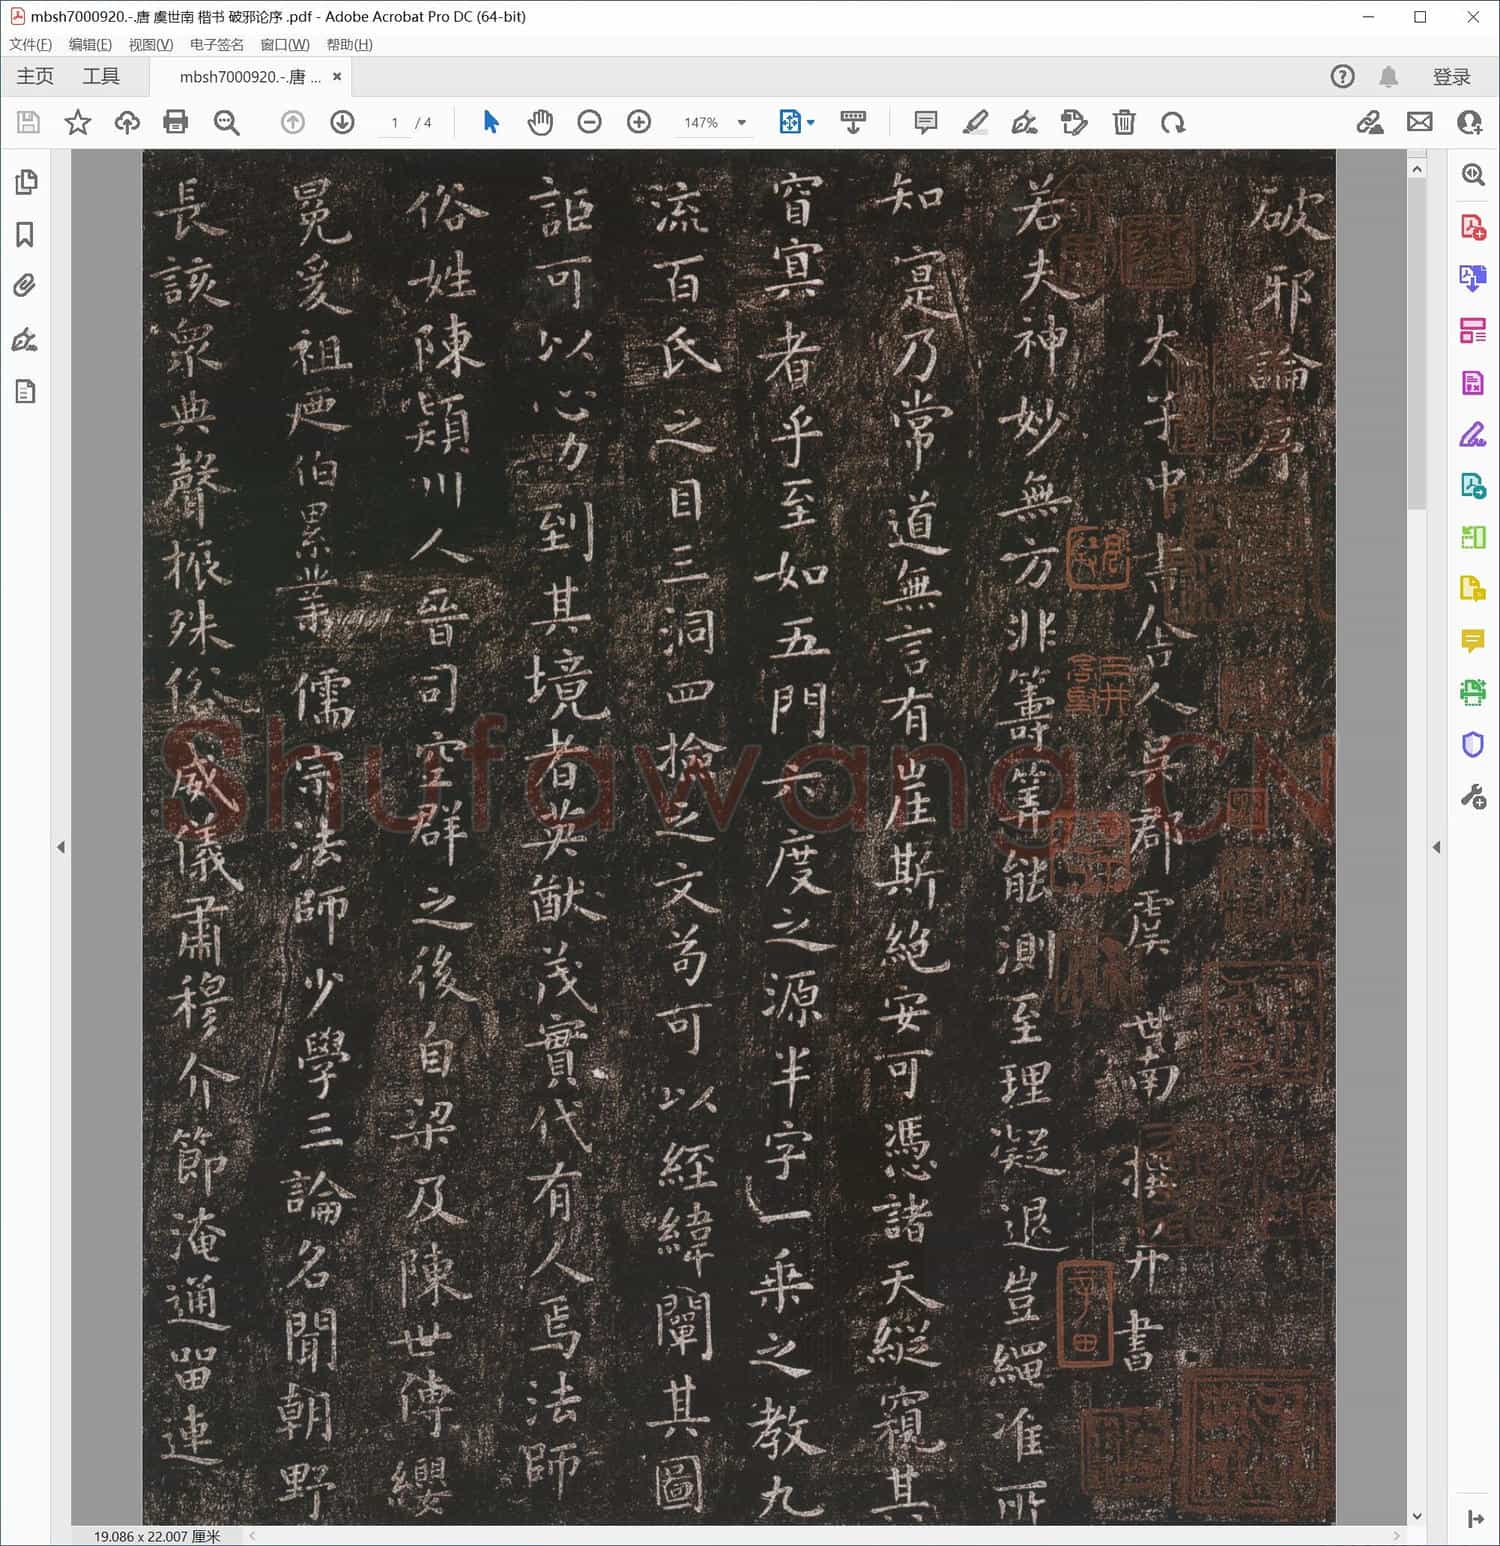 mbsh7000920.-.唐 虞世南 楷书 破邪论序 .pdf - Adobe Acrobat Pro DC (64-bit)
文件(F) 编辑(E) 视图(V) 电子签名 窗口(W) 帮助(H)
主页 工具 mbsh7000920.-.唐 ... × 登录
1 / 4 147%
破邪論序
太子中書舍人吳郡虞世南撰并書
若夫神妙無方非籌筭能測至理凝退豈繩准所
知寔乃常道無言有崖斯絶安可憑諸天縱窺其
窅寘者乎至如五門六度之源半字一乗之教九
流百氏之目三洞四撿之文苟可以經緯闡其圖
詎可以心力到其境者英猷茂實代有人焉法師
俗姓陳潁川人晉司空群之後自梁及陳世傳纓
冕爰祖迺伯累業儒宗法師少學三論名聞朝野
長該衆典聲振殊俗威儀肅穆介節淹通留連
Shufawang.CN
李田
19.086 x 22.007 厘米